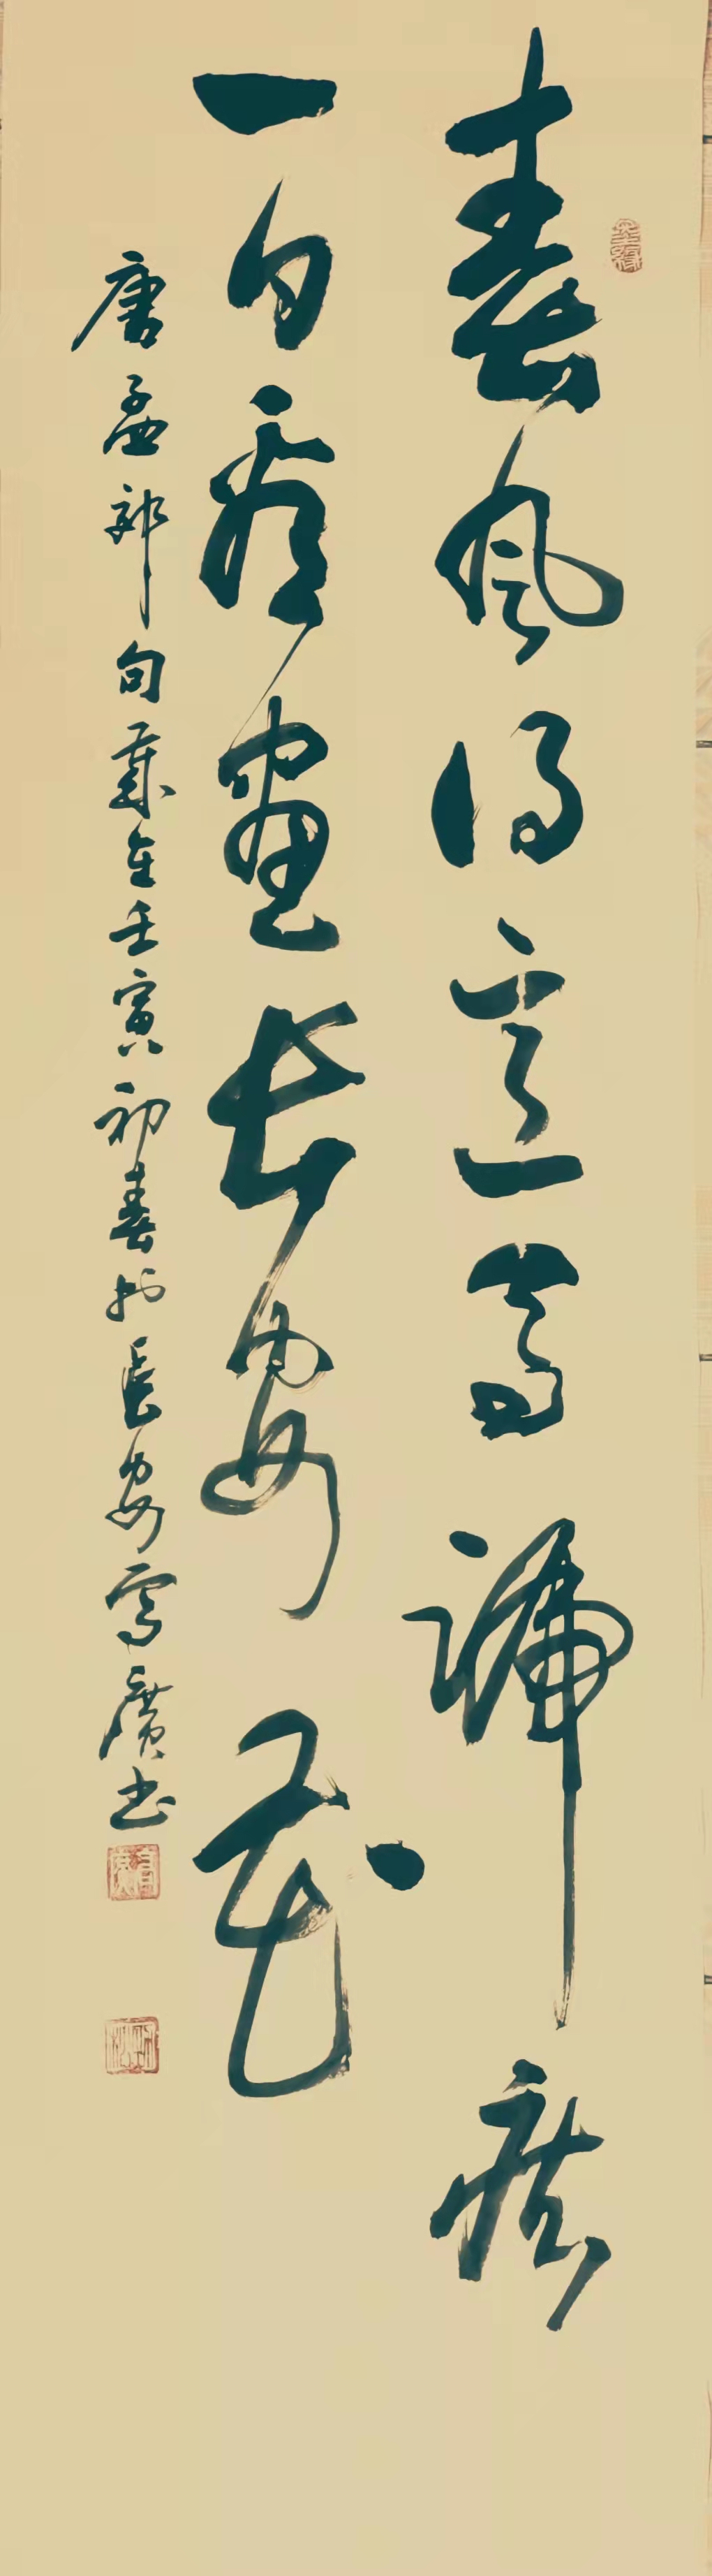 春風得意馬蹄疾
一日看盡長安花
唐孟郊句歲在壬寅初春於長安高廣書